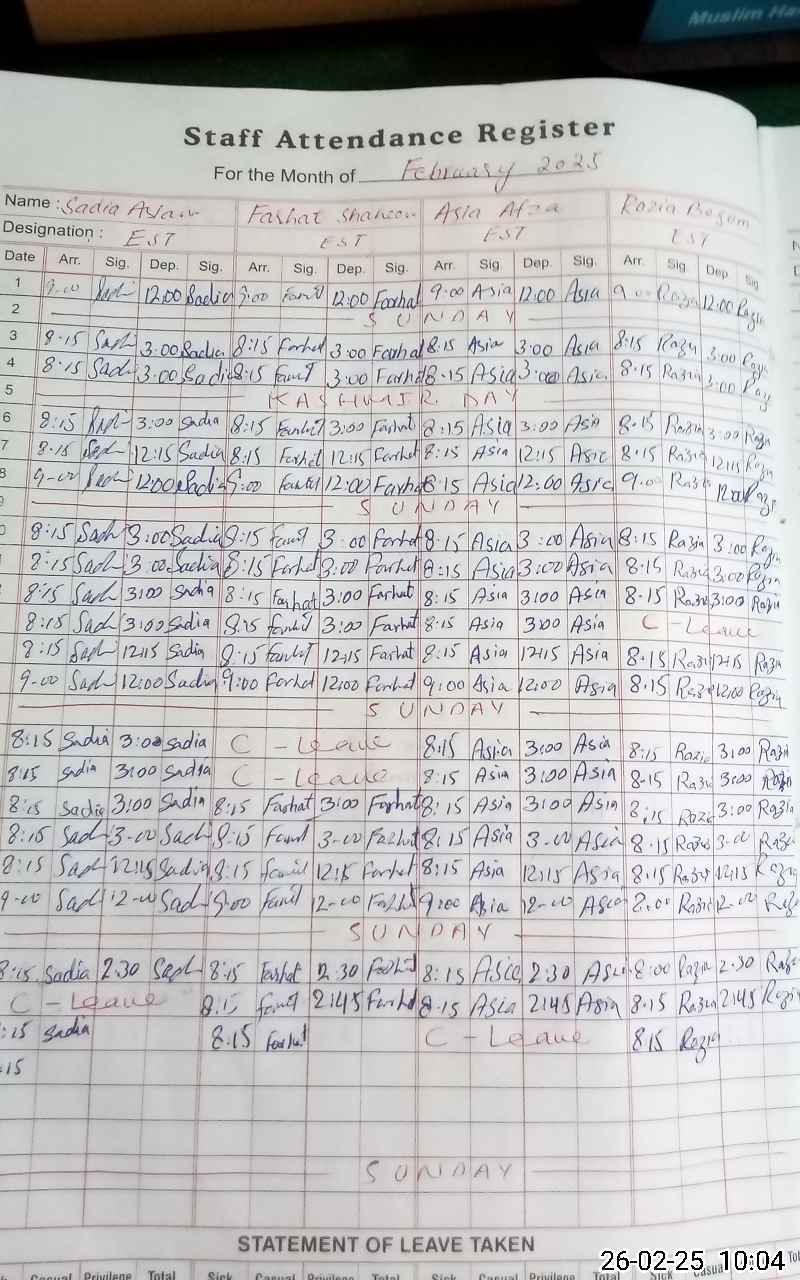 Muslim Ha
Staff Attendance Register
For the Month of February 2025
Name : Sadia Aslam Farhat Shaheen Asia Afza Razia Begum
Designation : EST EST EST EST
Date Arr. Sig. Dep. Sig. Arr. Sig. Dep. Sig. Arr. Sig Dep. Sig. Arr. Sig Dep Sig
1 9-00 Sadi 12:00 Sadia 9:00 Farhat 12:00 Farhat 9:00 Asia 12:00 Asia 9 00 Razia 12:00 Razia
2 SUNDAY
3 8-15 Sadi 3:00 Sadia 8:15 Farhat 3:00 Farhat 8:15 Asia 3:00 Asia 8:15 Razia 3:00 Razia
4 8:15 Sadi 3:00 Sadia 8:15 Farhat 3:00 Farhat 8-15 Asia 3:00 Asia 8-15 Razia 3:00 Raz
5 KASHMIR DAY
6 8:15 Sadi 3:00 Sadia 8:15 Farhat 3:00 Farhat 8:15 Asia 3:00 Asia 8-15 Razia 3:00 Razia
7 8-15 Sadi 12:15 Sadia 8:15 Farhat 12:15 Farhat 8:15 Asia 12:15 Asia 8:15 Razia 12:15 Razia
8 9-00 Sadi 12:00 Sadia 9:00 Farhat 12:00 Farhat 8:15 Asia 12:00 Asia 9.00 Razia 12:00 Razia
SUNDAY
8:15 Sadi 3:00 Sadia 8:15 Farhat 3:00 Farhat 8:15 Asia 3:00 Asia 8:15 Razia 3:00 Razia
8:15 Sadi 3:00 Sadia 8:15 Farhat 3:00 Farhat 8:15 Asia 3:00 Asia 8-15 Razia 3:00 Razia
8:15 Sadi 3:00 Sadia 8:15 Farhat 3:00 Farhat 8:15 Asia 3:00 Asia 8-15 Razia 3:00 Razia
8:15 Sadi 3:00 Sadia 8:15 Farhat 3:00 Farhat 8-15 Asia 3:00 Asia C - Leave
8:15 Sadi 12:15 Sadia 8:15 Farhat 12:15 Farhat 8:15 Asia 12:15 Asia 8-15 Razia 12:15 Razia
9-00 Sadi 12:00 Sadia 9:00 Farhat 12:00 Farhat 9:00 Asia 12:00 Asia 8:15 Razia 12:00 Razia
SUNDAY
8:15 Sadia 3:00 Sadia C - Leave 8:15 Asia 3:00 Asia 8:15 Razia 3:00 Razia
8:15 Sadia 3:00 Sadia C - Leave 8:15 Asia 3:00 Asia 8-15 Razia 3:00 Razia
8:15 Sadia 3:00 Sadia 8:15 Farhat 3:00 Farhat 8:15 Asia 3:00 Asia 8:15 Razia 3:00 Razia
8:15 Sadi 3-00 Sadi 8:15 Farhat 3-00 Farhat 8:15 Asia 3-00 Asia 8-15 Razia 3-00 Razia
8:15 Sadi 12:15 Sadia 8:15 Farhat 12:15 Farhat 8:15 Asia 12:15 Asia 8:15 Razia 12:15 Razia
9-00 Sadi 12-00 Sadi 9:00 Farhat 12-00 Farhat 9:00 Asia 12-00 Asia 8:00 Razia 12-00 Razia
SUNDAY
8:15 Sadia 2:30 Sadi 8:15 Farhat 2:30 Farhat 8:15 Asia 2:30 Asia 8:00 Razia 2:30 Razia
C - Leave 8:15 Farhat 2:45 Farhat 8:15 Asia 2:45 Asia 8:15 Razia 2:45 Razia
:15 Sadia 8:15 Farhat C - Leave 8:15 Razia
:15
SUNDAY
STATEMENT OF LEAVE TAKEN
Casual Privilege Total Sick Casual Privilege Total Sick Casual Privilege Total Sick Casual
26-02-25 10:04